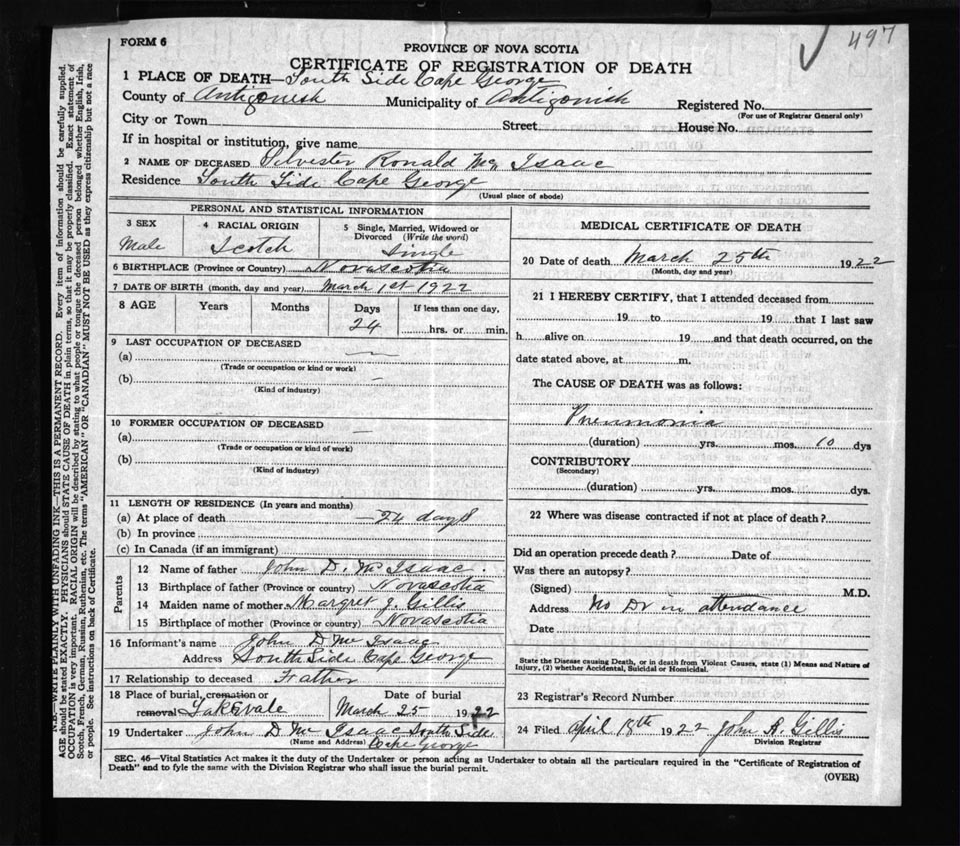 497
FORM 6
PROVINCE OF NOVA SCOTIA
CERTIFICATE OF REGISTRATION OF DEATH
1 PLACE OF DEATH—South Side Cape George
County of Antigonish Municipality of Antigonish Registered No.
(For use of Registrar General only)
City or Town Street House No.
If in hospital or institution, give name
2 NAME OF DECEASED Silvester Ronald Mc Isaac
Residence South Side Cape George
(Usual place of abode)
PERSONAL AND STATISTICAL INFORMATION
3 SEX 4 RACIAL ORIGIN 5 Single, Married, Widowed or Divorced (Write the word)
Male Scotch Single
6 BIRTHPLACE (Province or Country) Novascotia
7 DATE OF BIRTH (month, day and year) March 1st 1922
8 AGE Years Months Days If less than one day,
24 hrs. or min.
9 LAST OCCUPATION OF DECEASED
(a) —
(Trade or occupation or kind or work)
(b) —
(Kind of industry)
10 FORMER OCCUPATION OF DECEASED
(a) —
(Trade or occupation or kind of work)
(b)
(Kind of industry)
11 LENGTH OF RESIDENCE (In years and months)
(a) At place of death —24 days
(b) In province
(c) In Canada (if an immigrant)
Parents
12 Name of father John D. Mc Isaac.
13 Birthplace of father (Province or country) Novascotia
14 Maiden name of mother Margret J. Gillis
15 Birthplace of mother (Province or country) Novascotia
16 Informant's name John D Mc Isaac
Address South Side Cape George
17 Relationship to deceased Father
18 Place of burial, cremation or Date of burial
removal Lakevale March 25 1922
19 Undertaker John D Mc Isaac South Side
(Name and Address) Cape George
MEDICAL CERTIFICATE OF DEATH
20 Date of death March 25th 1922
(Month, day and year)
21 I HEREBY CERTIFY, that I attended deceased from
19 to 19 that I last saw
h alive on 19 and that death occurred, on the
date stated above, at m.
The CAUSE OF DEATH was as follows:
Pneumonia
(duration) yrs. mos. 10 dys
CONTRIBUTORY
(Secondary)
(duration) yrs. mos. dys.
22 Where was disease contracted if not at place of death?
Did an operation precede death? Date of
Was there an autopsy?
(Signed) M.D.
Address No Dr in attendance
Date
State the Disease causing Death, or in death from Violent Causes, state (1) Means and Nature of
Injury, (2) whether Accidental, Suicidal or Homicidal.
23 Registrar's Record Number
24 Filed April 18th 1922 John A. Gillis
Division Registrar
SEC. 46—Vital Statistics Act makes it the duty of the Undertaker or person acting as Undertaker to obtain all the particulars required in the "Certificate of Registration of
Death" and to fyle the same with the Division Registrar who shall issue the burial permit.
(OVER)
N.B.—WRITE PLAINLY WITH UNFADING INK—THIS IS A PERMANENT RECORD. Every item of information should be carefully supplied.
AGE should be stated EXACTLY. PHYSICIANS should STATE CAUSE OF DEATH in plain terms, so that it may be properly classified. Exact statement of
OCCUPATION is very important. RACIAL ORIGIN will be described by stating to what people or tongue the deceased person belonged whether English, Irish,
Scotch, French, German, Russian, Ruthenian, etc. The terms "AMERICAN" OR "CANADIAN" MUST NOT BE USED as they express citizenship but not a race
or people. See instructions on back of Certificate.